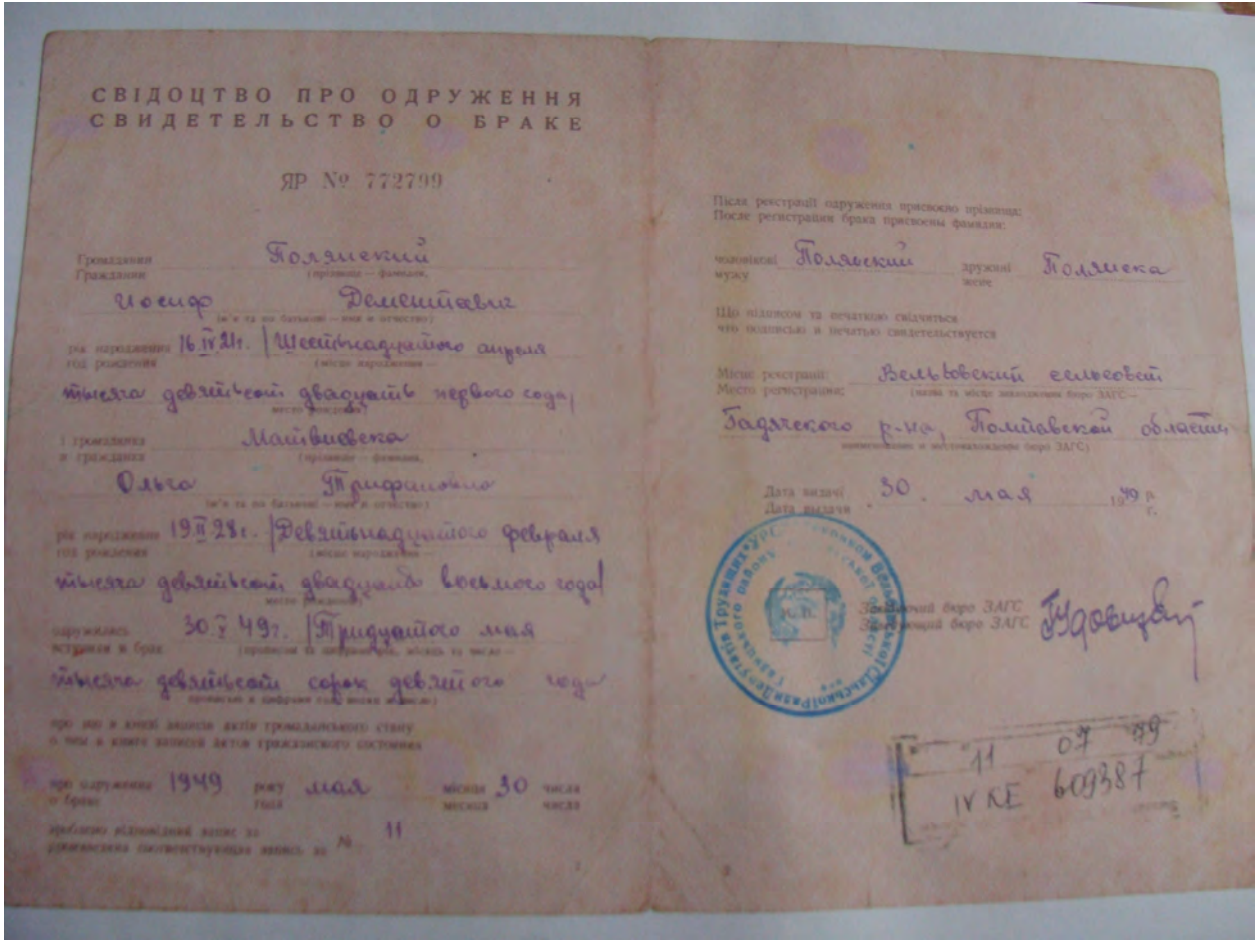 СВІДОЦТВО ПРО ОДРУЖЕННЯ
СВИДЕТЕЛЬСТВО О БРАКЕ
ЯР № 772799
Громадянин
Гражданин
Полянский
(прізвище — фамилия,
Иосиф
(ім'я та по батькові — имя и отчество)
рік народження
год рождения
16.IV.21г. /Шестьнадцатого апреля
(місце народження —
тысяча девятьсот двадцать первого года/
место рождения)
і громадянка
и гражданка
(прізвище — фамилия,
Ольга
(ім'я та по батькові — имя и отчество)
рік народження
год рождения
19.II.28г. /Девятьнадцатого февраля
(місце народження —
тысяча девятьсот двадцать восьмого года/
место рождения)
одружились
вступили в брак
30.V 49г. /Тридцатого мая
(прописом та цифрами рік, місяць та число —
тысяча девятьсот сорок девятого года
прописью и цифрами год, месяц и число)
про що в книзі записів актів громадянського стану
о чем в книге записей актов гражданского состояния
про одруження
о браке
1949 року мая місяця 30 числа
года месяца числа
зроблено відповідний запис за
произведена соответствующая запись за
№ 11
1
Після реєстрації одруження присвоєно прізвища:
После регистрации брака присвоены фамилии:
чоловікові
мужу
Полянский
дружині
жене
Полянска
Що підписом та печаткою свідчиться
что подписью и печатью свидетельствуется
Місце реєстрації:
Место регистрации:
Вельбовский сельсовет
(назва та місце знаходження бюро ЗАГС —
Гадячского р-на, Полтавской области
наименование и местонахождение бюро ЗАГС)
Дата видачі
Дата выдачи
30. мая 1979 р.
г.
М. П.
Завідуючий бюро ЗАГС
Заведующий бюро ЗАГС
11 07 79
IV КЕ 609387
2